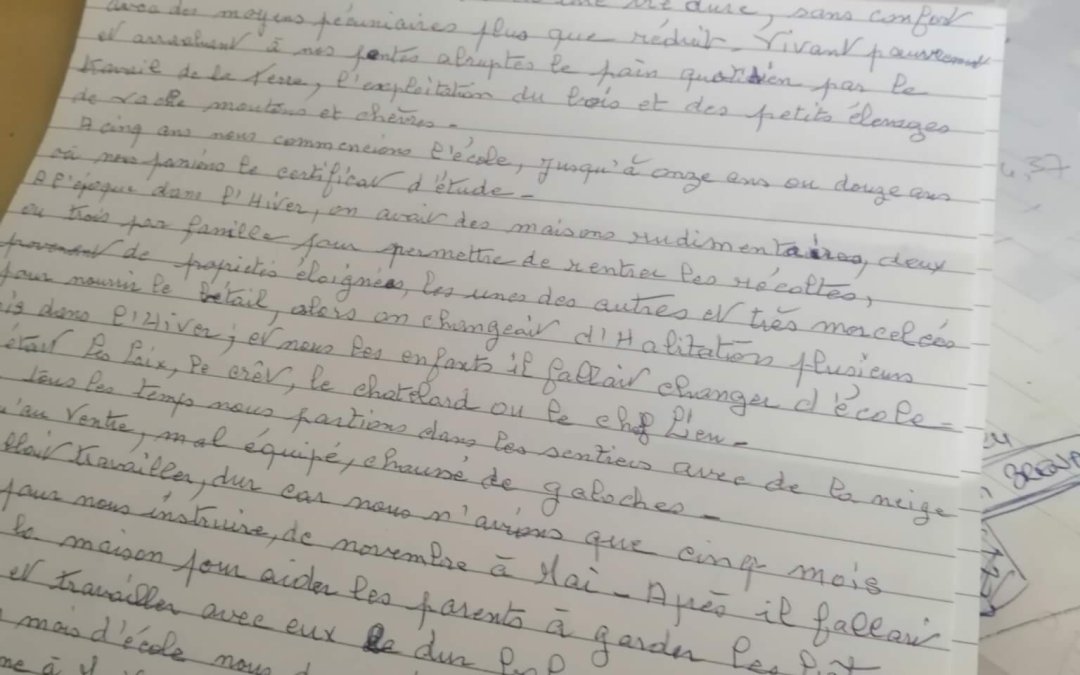 dure, sans confort
avec des moyens pécuniaires plus que réduit. Vivant pauvrement
et arrachant à nos pentes abruptes le pain quotidien par le
travail de la terre, l'exploitation du bois et des petits élevages
de vache moutons et chèvres.
A cinq ans nous commencions l'école, jusqu'à onze ans ou douze ans
où nous passions le certificat d'étude.
A l'époque dans l'Hiver, on avait des maisons rudimentaires, deux
ou trois par famille pour permettre de rentrer les récoltes,
provenant de propietés éloignées, les unes des autres et très morcelées
pour nourrir le bétail, alors on changeait d'Habitation plusieurs
is dans l'Hiver; et nous les enfants il fallait changer d'école.
était la Paix, le crêt, le chatelard ou le chef Lieu.
tous les temps nous partions dans les sentiers avec de la neige
u'au ventre, mal équipé, chaussé de galoches.
llait travailler, dur car nous n'avions que cinq mois
pour nous instruire, de novembre à Mai. Après il fallait
la maison pour aider les parents à garder les
et travailler avec eux le dur
mois d'école nous
37